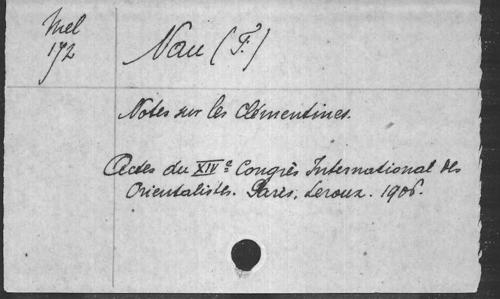 Mel
172
Nau (F.)
Notes sur les Clémentines.
Actes du XIVe Congrès International des
Orientalistes. Paris, Leroux. 1906.